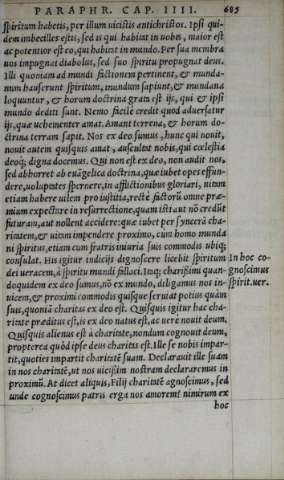 PARAPHR. CAP. IIII. 685
spiritum habetis, per illum vicistis antichristos. Ipsi qui-
dem imbecilles estis, sed is qui habitat in uobis, maior est
ac potentior est eo, qui habitat in mundo. Per sua membra
uos impugnat diabolus, sed suo spiritu propugnat deus.
Illi quoniam ad mundi factionem pertinent, & munda-
num hauserunt spiritum, mundum sapiunt, & mundana
loquuntur, & horum doctrina grata est ijs, qui & ipsi
mundo dediti sunt. Nemo facile credit quod aduersatur
ijs, quæ uehementer amat. Amant terrena, & horum do-
ctrina terram sapit. Nos ex deo sumus, hunc qui nouit,
nouit autem quisquis amat, auscultat nobis, qui cœlestia
deoq; digna docemus. Qui non est ex deo, non audit nos,
sed abhorret ab euāgelica doctrina, quæ iubet opes effun-
dere, uoluptates spernere, in afflictionibus gloriari, uitam
etiam habere uilem pro iustitia, recte factorū omne præ-
mium expectare in resurrectione, quam isti aut nō credūt
futuram, aut nollent accidere: quæ iubet per syncerā cha-
ritatem, & uitam impendere proximo, cum homo munda
ni spiritus, etiam cum fratris iniuria suis commodis ubiq;
consulat. His igitur indicijs dignoscere licebit spiritum In hoc co-
dei ueracem, à spiritu mundi fallaci. Inq; charissimi quan- gnoscimus
doquidem ex deo sumus, nō ex mundo, diligamus nos in- spirit. uer.
uicem, & proximi commodis quisque seruiat potius quàm
suis, quoniā charitas ex deo est. Quisquis igitur hac cha-
ritate præditus est, is ex deo natus est, ac uere nouit deum.
Quisquis alienus est à charitate, nondum cognouit deum,
propterea quòd ipse deus charitas est. Ille se nobis impar-
tit, quoties impartit charitatē suam. Declarauit ille suam
in nos charitatē, ut nos uicissim nostram declararemus in
proximū. At dicet aliquis, Filij charitatē agnoscimus, sed
unde cognoscimus patris erga nos amorem? nimirum ex
hoc